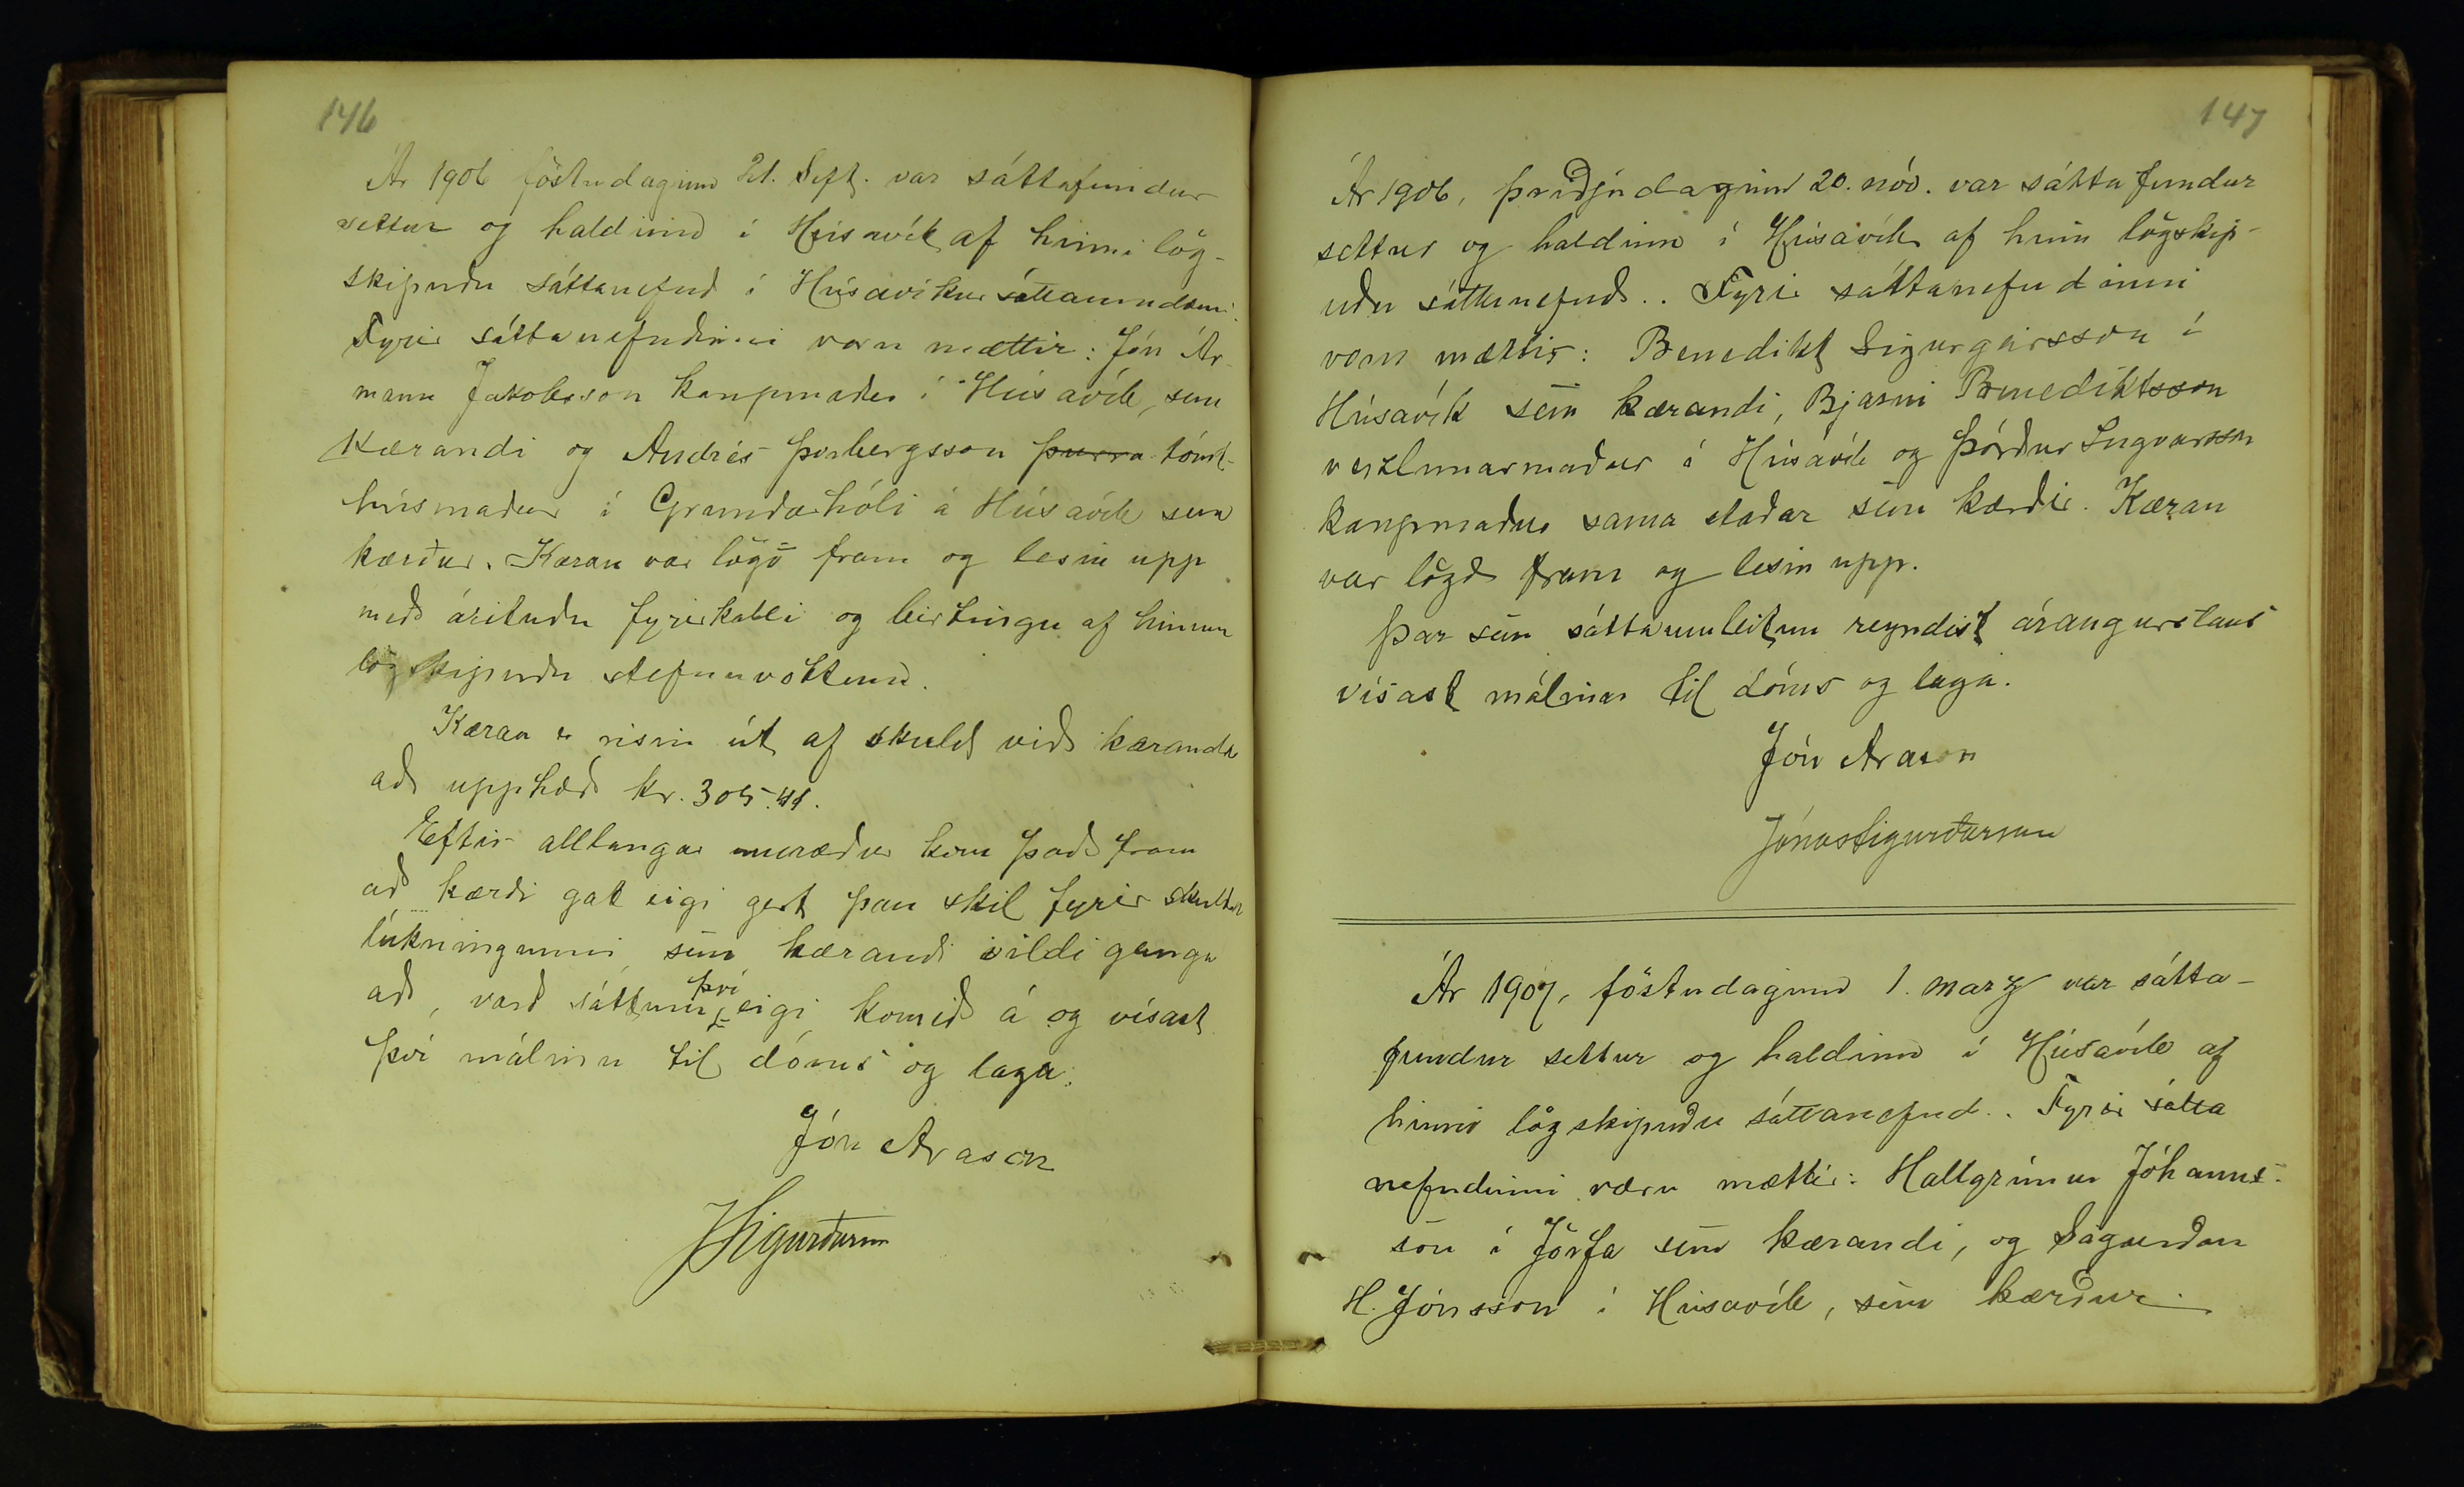 146
Ár 1906 föstudaginn 21. Sept. var sáttafundur
settur og haldinn i Húsavík af hinni lög-
skipuðu sáttanefnd i Húsavíkur sáttaumdæmi.
Fyrir sáttanefndinni voru mættir: Jón Ár-
mann Jakobsson kaupmaður i Húsavík, sem
Kærandi og Andrés Þorbergsson þurra tómt-
húsmaður i Grundarhóli á Húsavík sem
kærður. Kæran var lögð fram og lesin upp
með árituðu fyrirkalli og birtingu af hinum
lögskipuðu stefnuvottum.
Kæran er risin út af skuld við kæranda
að upphæð kr. 305.41.
Eftir alllangar umræður kom það fram
að kærði gat eigi gert þau skil fyrir skuldar
lúkningunni, sem kærandi vildi ganga
að, varð sáttum því eigi komið á og vísast
því málinu til dóms og laga.
Jón Arason
JSigurðarson
147
Ár 1906, þriðjudaginn 20. nóv. var sátta fundur
settur og haldinn i Húsavík af hinni lögskip-
uðu sáttanefnd.. Fyrir sáttanefndinni
voru mættir: Benedikt Sigurgeirsson i
Húsavík sem kærandi, Bjarni Benediktsson
verzlunarmaður á Húsavík og Þórður Ingvarsson
kaupmaður sama staðar sem kærðir. Kæran
var lögð fram og lesin upp.
Þar sem sáttaumleitun reyndist árangurslaus
vísast málinu til dóms og laga.
Jón Arason
Jónas Sigurðarson
Ár 1907, föstudaginn 1. marz var sátta-
fundur settur og haldinn i Húsavík af
hinni lögskipuðu sáttanefnd.. Fyrir sátta
nefndinni voru mættir: Hallgrímur Jóhanns-
son i Jörfa sem kærandi, og Sigurður
H. Jónsson i Húsavík, sem kærður.